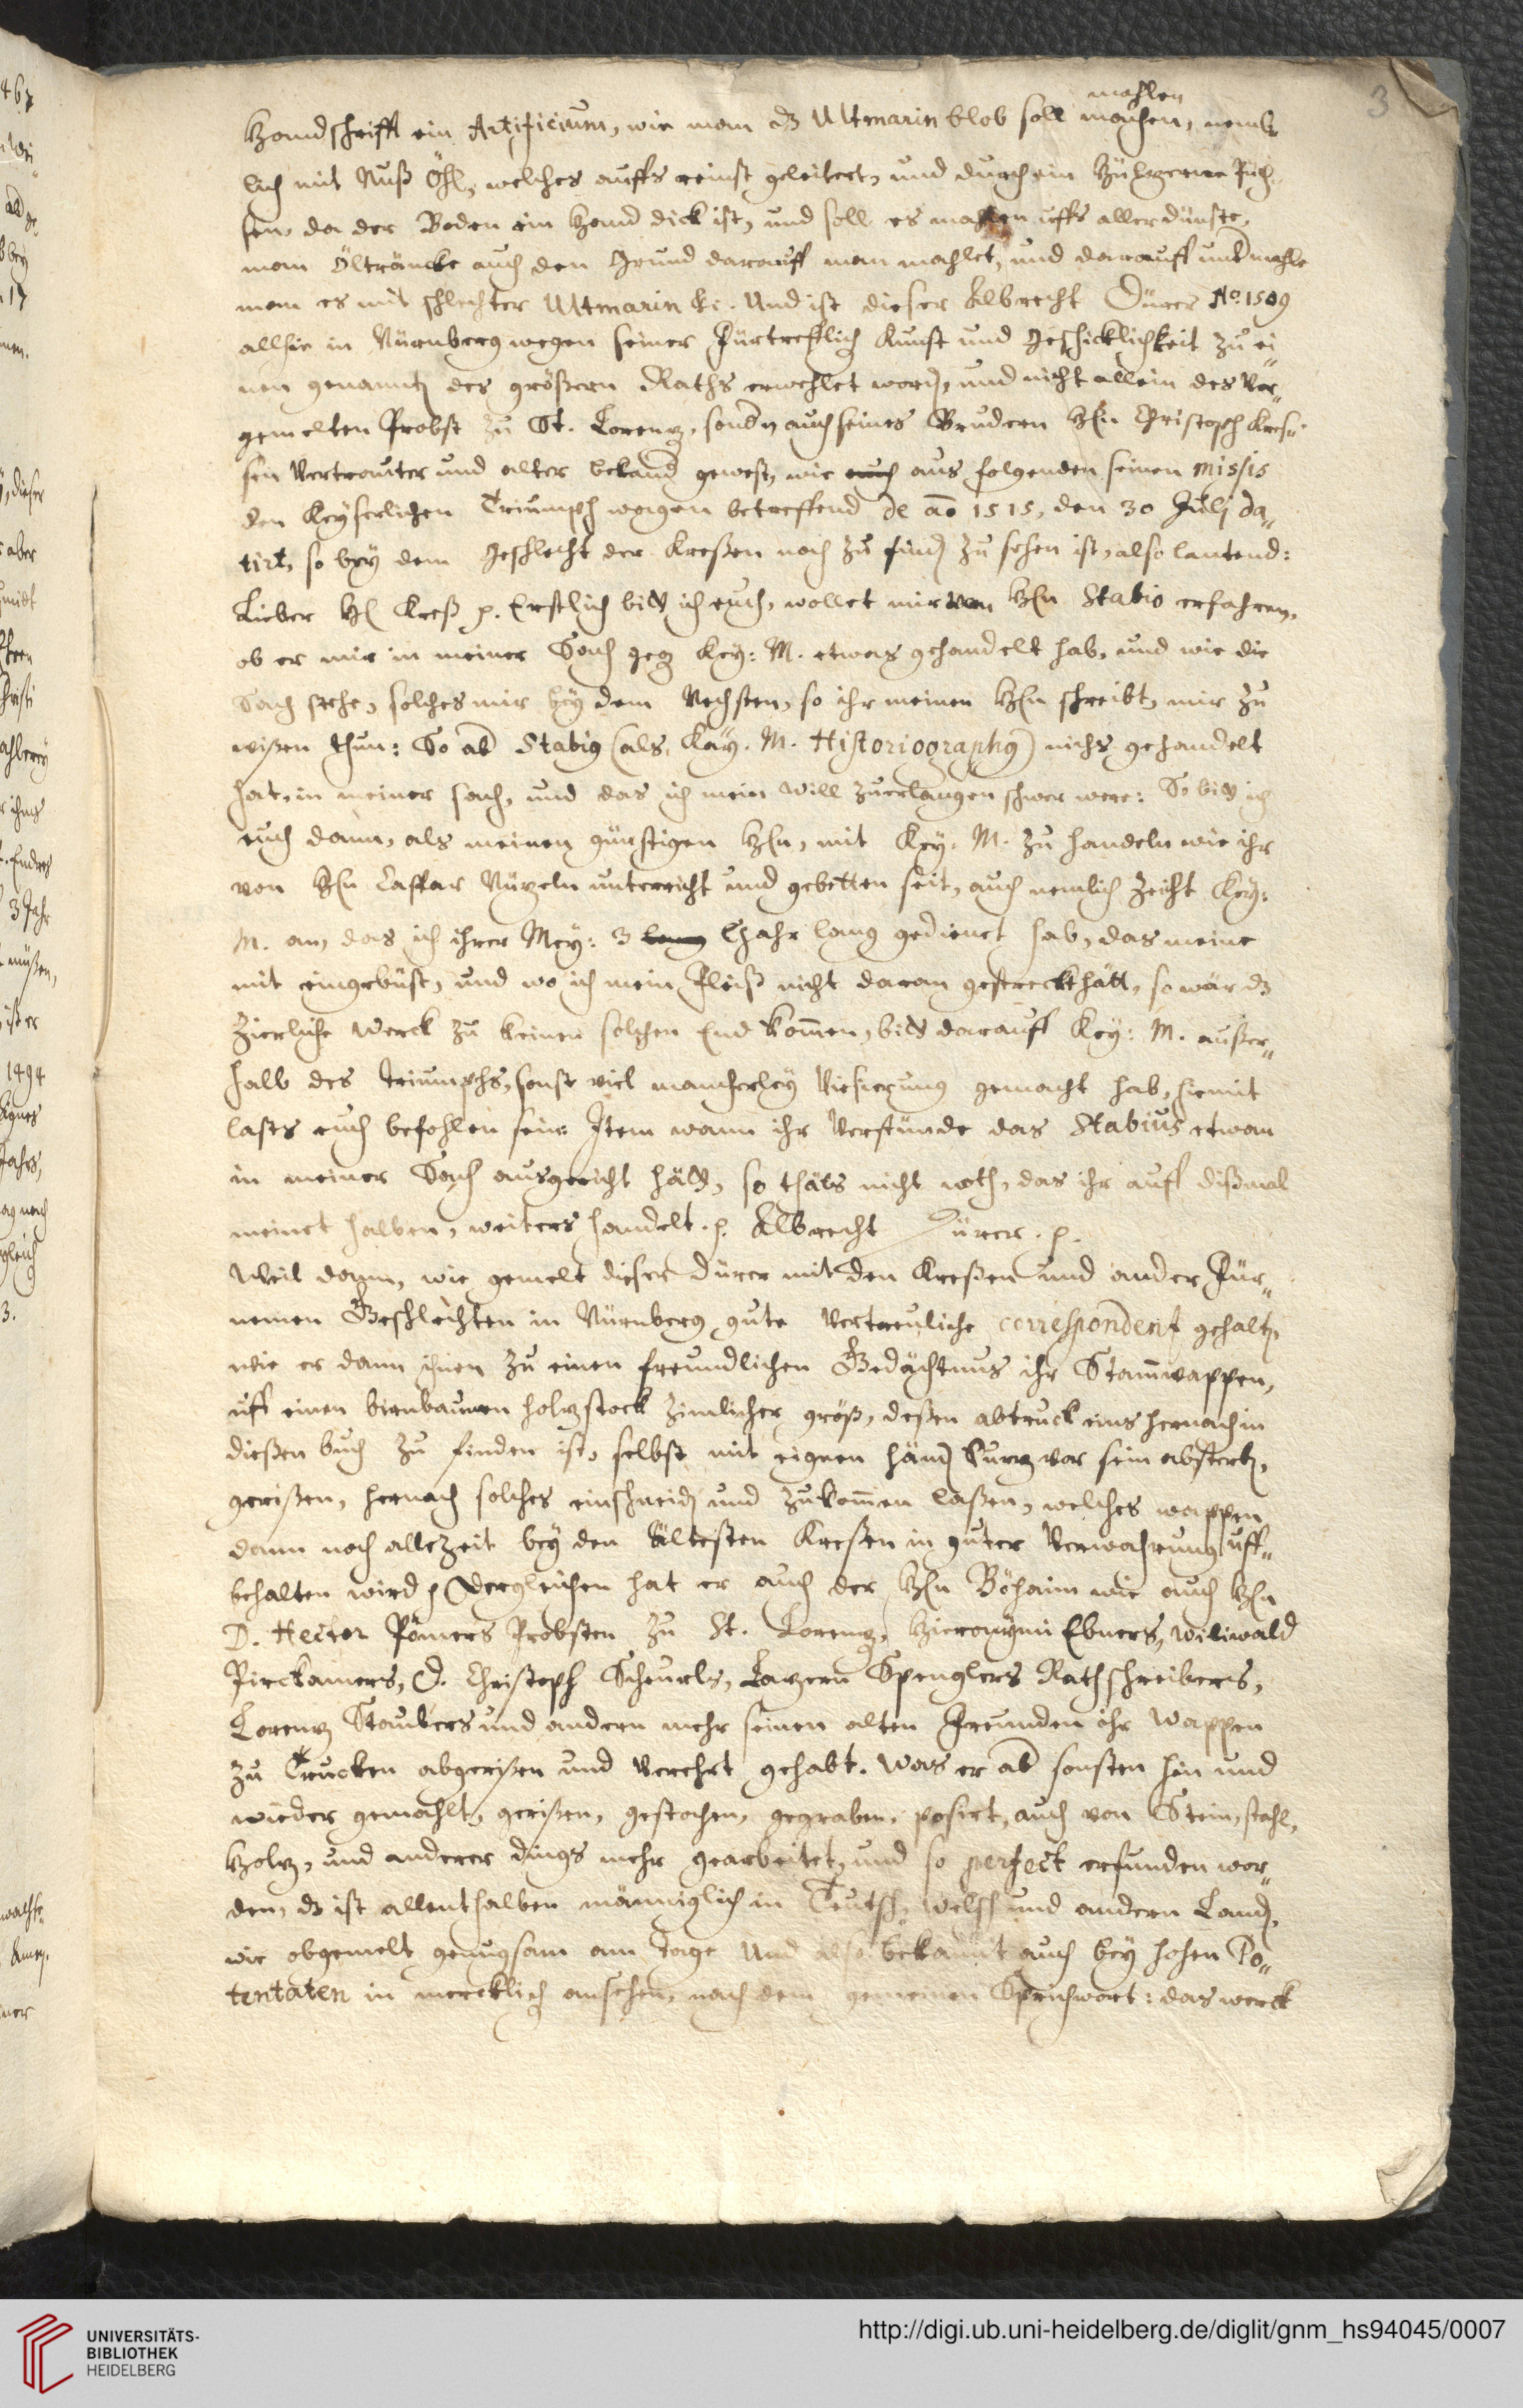 3
mahlen
Handschrifft ein Artificium, wie man dz Ultmarin blob soll machen, nemb
lich mit Nuß Öhl, welches auffs reinst geleitert, und durch ein hültzerne Püch
sen, da der Boden ein Hand dick ist, und soll es mahlen uffs aller dünste,
man öltrancke auch den Grund darauff man mahlet, und darauff undmahle
man es mit schlechter Ultmarin &c. Und ist dieser Albrecht Dürer Ao. 1509
allhie in Nürnberg wegen seiner Fürtrefflich Kunst und Geschicklichkeit zu ei
nen genannten des größern Raths erwehlet worden, und nicht allein des vor
gemelten Probst zu St. Lorentz, sondern auch seines Brudern Hrn Christoph Kres
sen Vertrauter und alter bekand gewest, wie auch aus folgenden seinen missis
den Keyserlichen Triumph wagen betreffend de ao 1515, den 30 Julj da
tirt, so bey dem Geschlecht der Kreßen noch zu finden zu sehen ist, also lautend:
Lieber H. Kreß p. Erstlich bitt ich euch, wollet mir von Hrn Stabio erfahren,
ob er mir in meiner Sach gegen Key: M. etwas gehandelt hab, und wie die
Sach stehe, solches mir bey dem Nechsten, so ihr meinen Hrn schreibt, mir zu
wißen thun: So aber Stabius (als Kay. M. Historiographus) nichs gehandelt
hat, in meiner sach, und das ich mein will zuerlangen schwer were: So bitt ich
euch dann, als meinen günstigen Hrn, mit Key. M. zu handeln wie ihr
von Hrn Caspar Nützeln unterricht und gebetten seit, auch nemlich zeiht Key:
M. an, das ich ihrer Mey: 3 lang Jahr lang gedienet hab, das meine
mit eingebüst, und wo ich mein Fleiß nicht daran gestreckt hätt, so wär dz
Zierliche Werck zu keinen solchen End kommen, bitt darauff Key: M. außer
halb des Triumphs, sonst viel mancherley Visierung gemacht hab, hiemit
lasts euch befohlen sein: Item wann ihr verstünde das Stabius etwan
in meiner Sach ausgericht hätt, so thäts nicht noth, das ihr auff dißmal
meinet halben, weiters handelt. p. Albrecht Dürer. p.
Weil dann, wie gemelt dieser Dürer mit den Kreßen und ander Für
nemen Geschlechten in Nürnberg gute Vertreuliche correspondentz gehalten,
wie er dann ihnen zu einen freundlichen Gedächtnus ihr Stammwappen,
uff einen birnbaumen holtzstock zimlicher größ, deßen abtruck eins hernach in
dießen buch zu finden ist, selbst mit eignen händen kurtz vor sein absterben,
gerißen, hernach solches einschneiden und zukommen laßen, welches wappen
dann noch allezeit bey den Ältesten Kreßen in guter Verwahrung uff
behalten wird p Dergleichen hat er auch der Hrn Böhaim wie auch Hrn
D. Hector Pömers Probsten zu St. Lorentz, Hieronymi Ebners, Wiliwald
Pirckamers, D. Christoph Scheurls, Latzern Spenglers Rathschreibers,
Lorentz Staubers und andern mehr seinen alten Freunden ihr wappen
zu Trucken abgerißen und verehrt gehabt. Was er aber sonsten hin und
wieder gemahlt, gerißen, gestochen, gegraben, posirt, auch von Stein, stahl,
Holtz, und anderer dings mehr gearbeitet, und so perfect erfunden wor
den, dz ist allenthalben männiglich in Teutsch, Welsch und andern Landen,
wie obgemelt genugsam am tage und also bekannt auch bey hohen Po
tentaten in mercklich ansehen, nach dem gemeinen Sprichwort: das werck
UNIVERSITÄTS-
BIBLIOTHEK
HEIDELBERG
http://digi.ub.uni-heidelberg.de/diglit/gnm_hs94045/0007